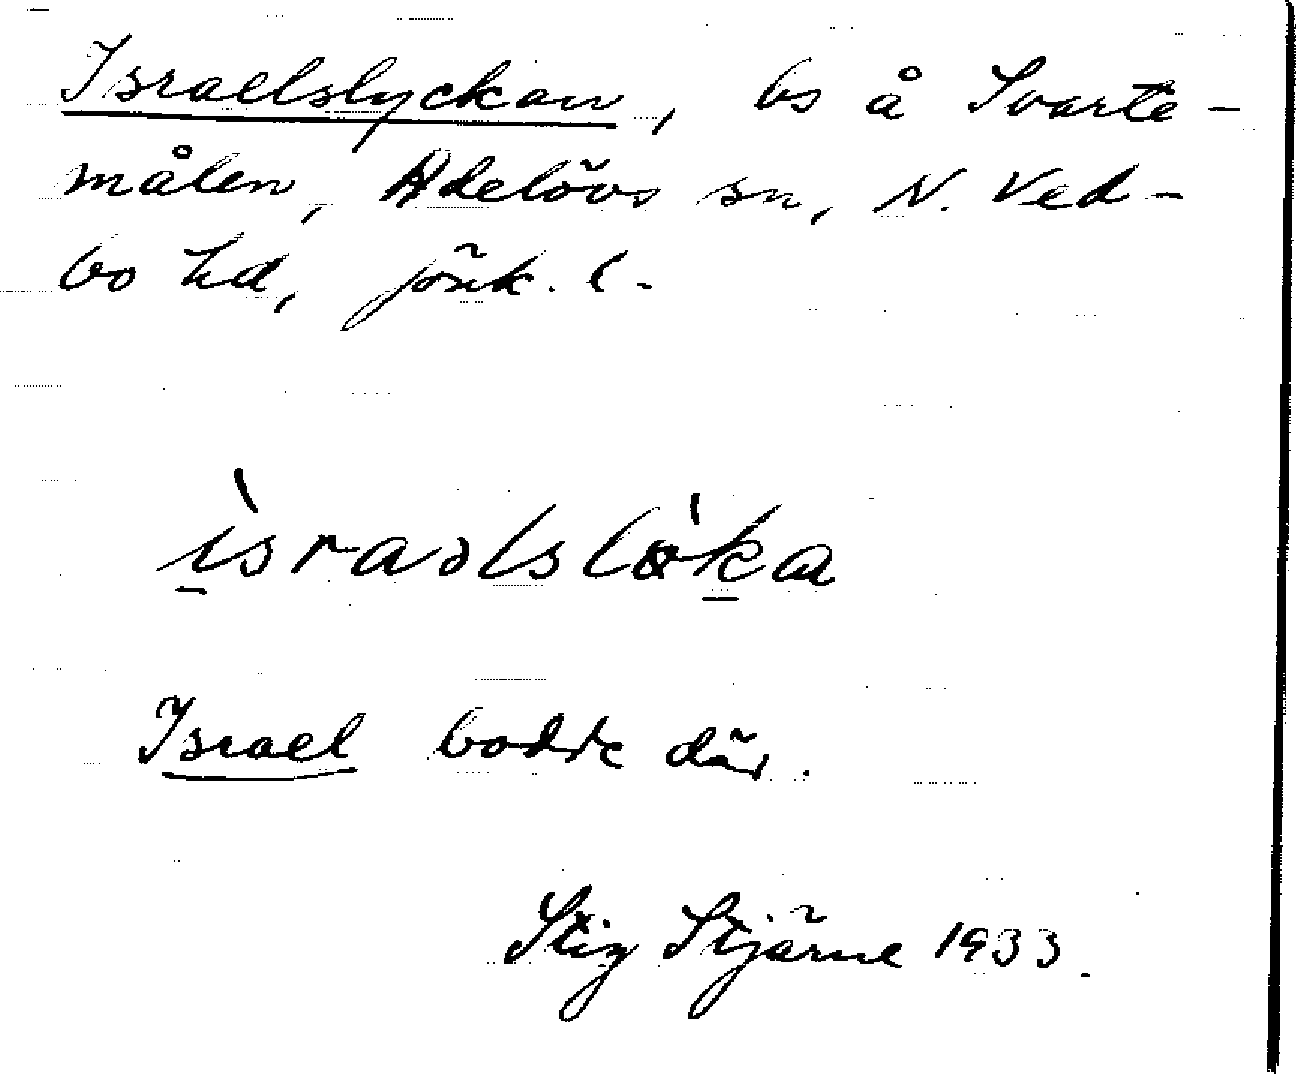 Israelslyckan, bs å Svarte-
målen, Adelövs sn, N. Ved-
bo hd, jönk. l.
ìsraəlslöka
Israel bodde där.
Stig Stjärne 1933.